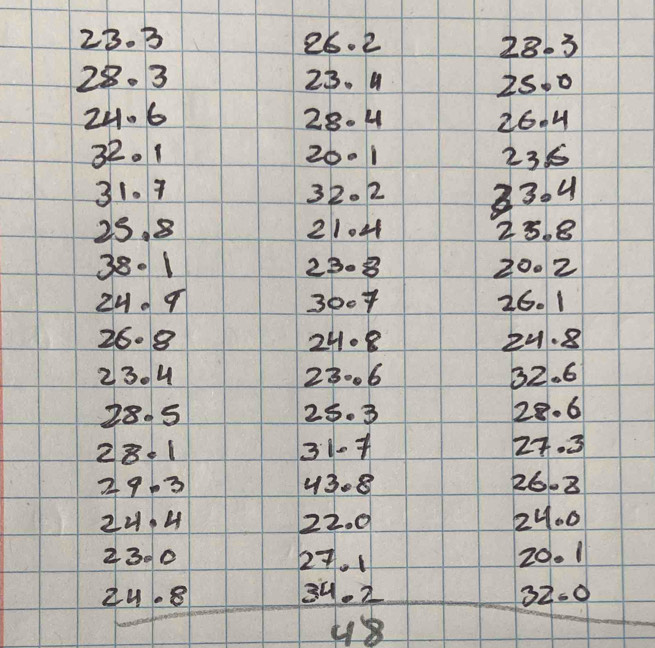 23.3 26.2 28.3
28.3 23.4 25.0
24.6 28.4 26.4
32.1 20.1 23.6
31.7 32.2 33.4
25.8 21.4 25.8
38.1 23.8 20.2
24.9 30.7 26.1
26.8 24.8 24.8
23.4 23.6 32.6
28.5 25.3 28.6
28.1 31.7 27.3
29.3 43.8 26.8
24.4 22.0 24.0
23.0 27.1 20.1
24.8 34.2 32.0
48